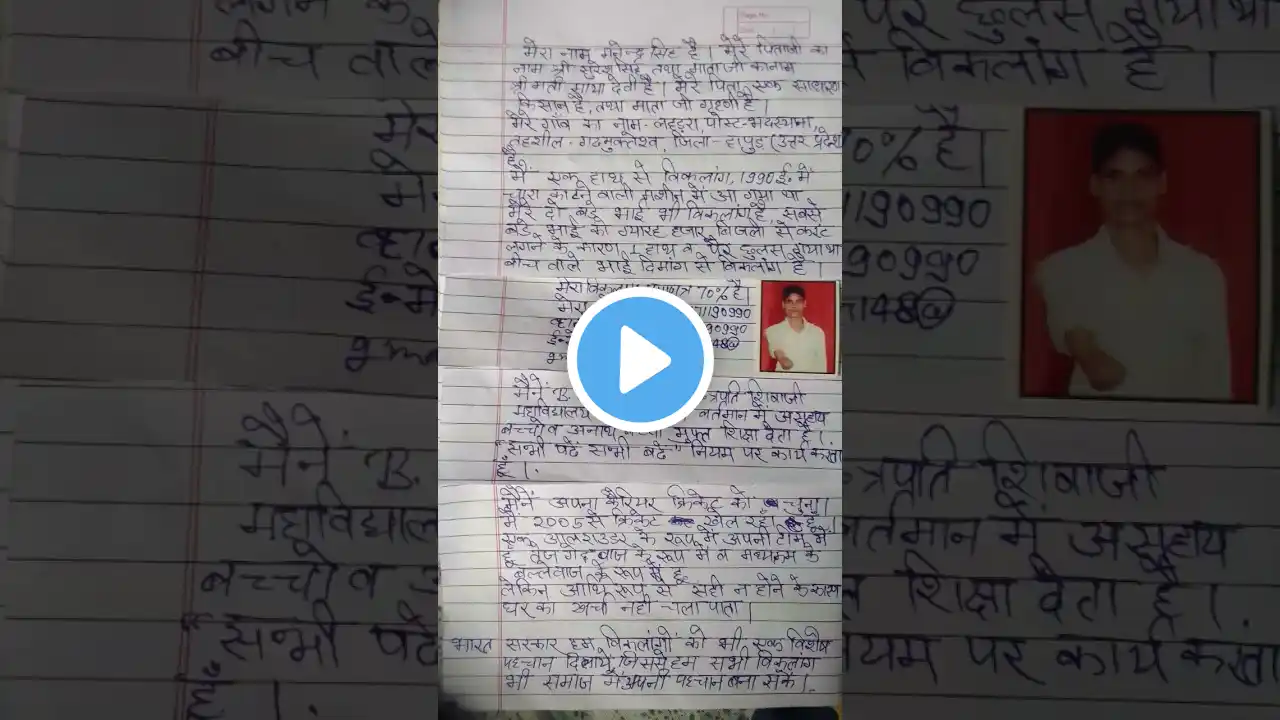 मेरा नाम गजेन्द्र सिंह है । मेरे पिताजी का
नाम श्री सुरेश सिंह तथा माता जी का नाम
श्रीमती माया देवी है । मेरे पिता एक साधारण
किसान है, तथा माता जी गृहणी है ।
मेरे गाँव का नाम- लहडरा, पोस्ट-
तहशील- गढमुक्तेश्व, जिला- हापुड़ (उत्तर प्रदेश
है
मैं एक हाथ से विकलांग, 1990 ई० में
चारा काटने वाली मशीन में आ गया था
मेरे दो बड़े भाई भी विकलांग है, सबसे
बड़े भाई को ग्यारह हजार बिजली से करंट
लगने के कारण 1 हाथ व पैर झुलस गया था
बीच वाले भाई दिमाग से विकलांग है ।
मेरा विकलांग 70% है।
मेरा 1190990
90990
ई०मे 148@
gm
मैंने B. त्रपति शिवाजी
महाविद्यालय वर्तमान में असहाय
बच्चो व अनाथ मुफ्त शिक्षा देता हूँ ।
"सभी पढें सभी बढें" नियम पर कार्य करता
हूँ ।
मैंने अपना कैरियर क्रिकेट को चुना ।
मैं 2005 से क्रिकेट खेल रहा हूँ ।
एक आलराउडर के रूप में अपनी टीम में
हूँ तेज गेंदबाज के रूप में व मध्यक्रम के
बल्लेबाज के रूप में हूँ
लेकिन आर्थि रूप से सही न होने के कारण
घर का खर्चा नही चला पाता ।
भारत सरकार हम विकलांगों को भी एक विशेष
पहचान दिलाये जिससे हम सभी विकलांग
भी समाज में अपनी पहचान बना सकें ।